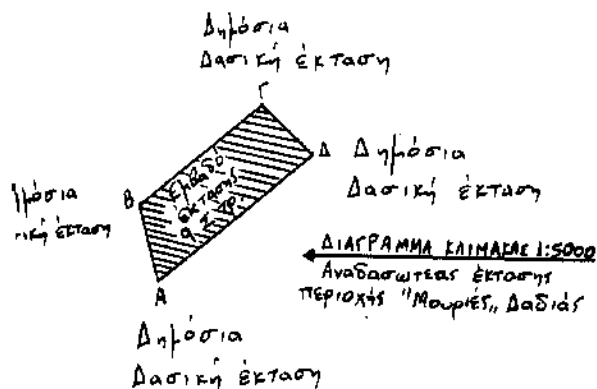 Δημόσια
Δασική έκταση
Γ
Δ Δημόσια
Δασική έκταση
Β
Εμβαδό
έκτασης
9 Στρ.
ημόσια
ική έκταση
Α
ΔΙΑΓΡΑΜΜΑ ΚΛΙΜΑΚΑΣ 1:5000
Αναδασωτέας έκτασης
περιοχής "Μουριές,, Δαδιάς
Δημόσια
Δασική έκταση